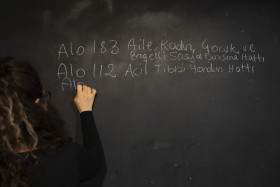 Alo 183 Aile, Kadın, Çocuk ve
Engelli Sosyal Danışma Hattı
Alo 112 Acil Tıbbi Yardım Hattı
Al